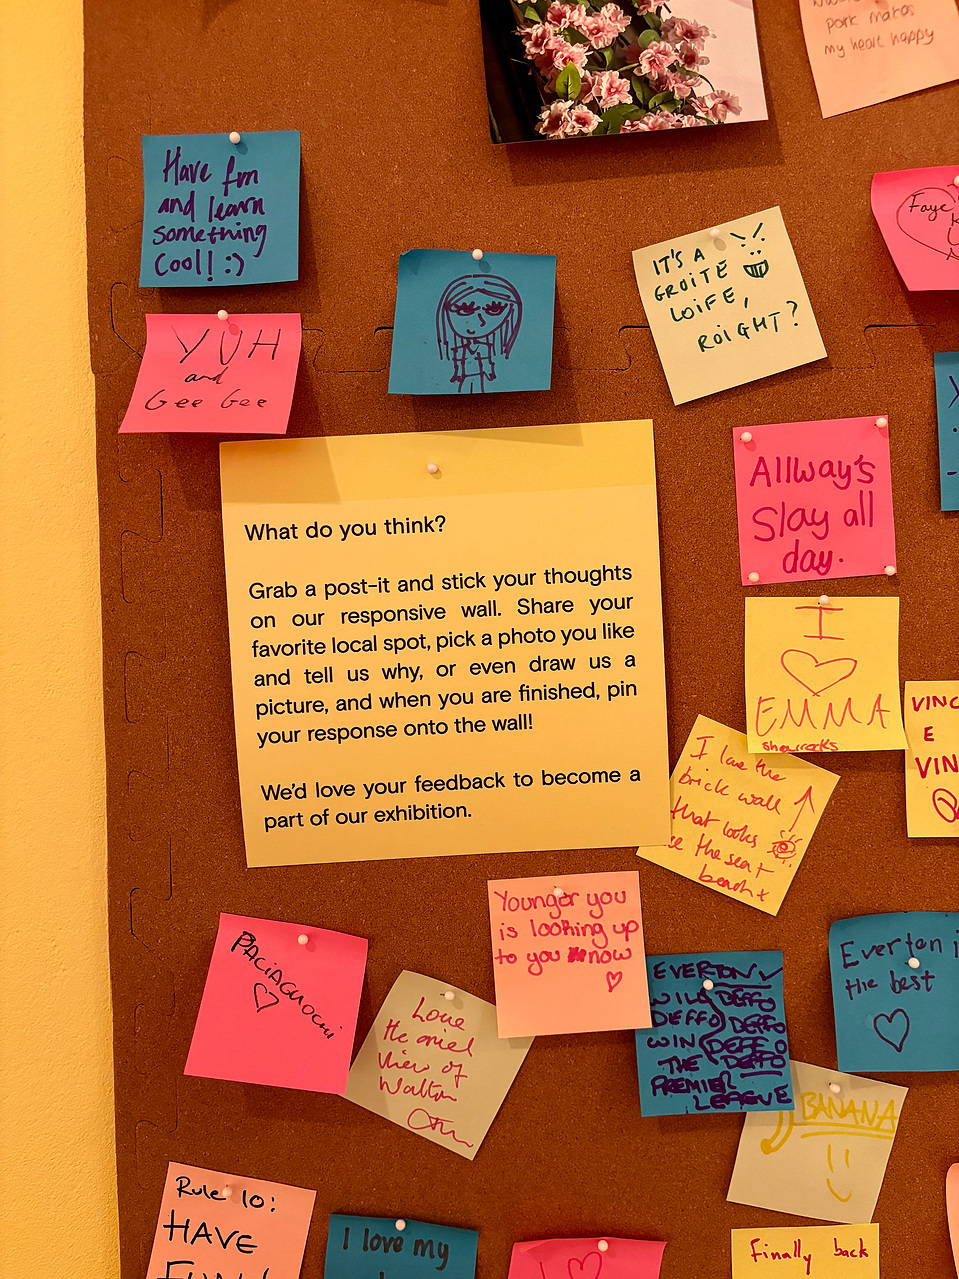 pork makes
my heart happy
Have fun
and learn
something
Cool! :)
Faye
IT'S A
GROITE
LOIFE,
ROIGHT?
YUH
and
Gee Gee
Allway's
Slay all
day.
What do you think?
Grab a post-it and stick your thoughts
on our responsive wall. Share your
favorite local spot, pick a photo you like
and tell us why, or even draw us a
picture, and when you are finished, pin
your response onto the wall!
We'd love your feedback to become a
part of our exhibition.
I
EMMA
sharrocks
VINC
E
VIN
I love the
brick wall
that looks
the sea +
beach +
Younger you
is looking up
to you now
PACIAGUOCHI
Love
the ariel
view of
Walton
EVERTON
WILL DEFFO
DEFFO DEFFO
WIN DEFFO
THE DEFFO
PREMIER
LEAGUE
Everton i
the best
BANANA
Rule 10:
HAVE
FUN!
I love my
Finally back